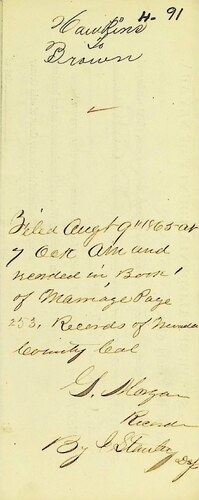 H. 91
Hawkins
to
Brown
Filed Augt 9th 1865 at
7 Ock AM and
recorded in Book 1
of Marriage Page
253, Records of Nevada
County Cal
G. Morgan
Recorder
By J Stanley Dep